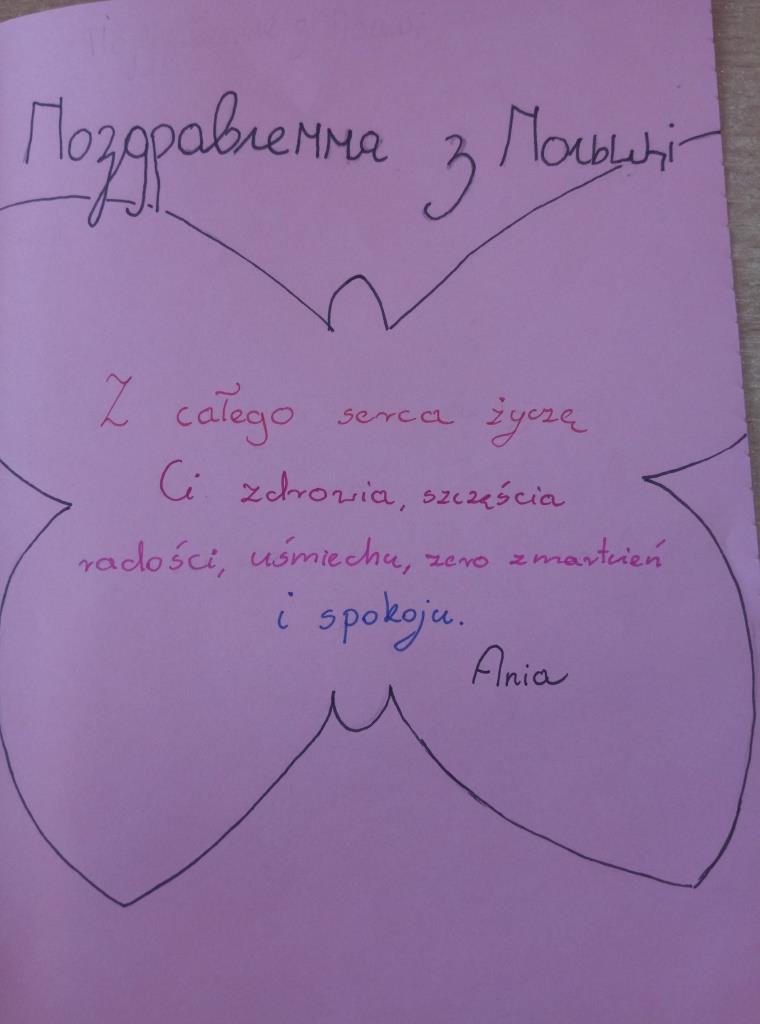 Поздравлемма з Польщі
Z całego serca życzę
Ci zdrowia, szczęścia
radości, uśmiechu, zero zmartwień
i spokoju.
Ania